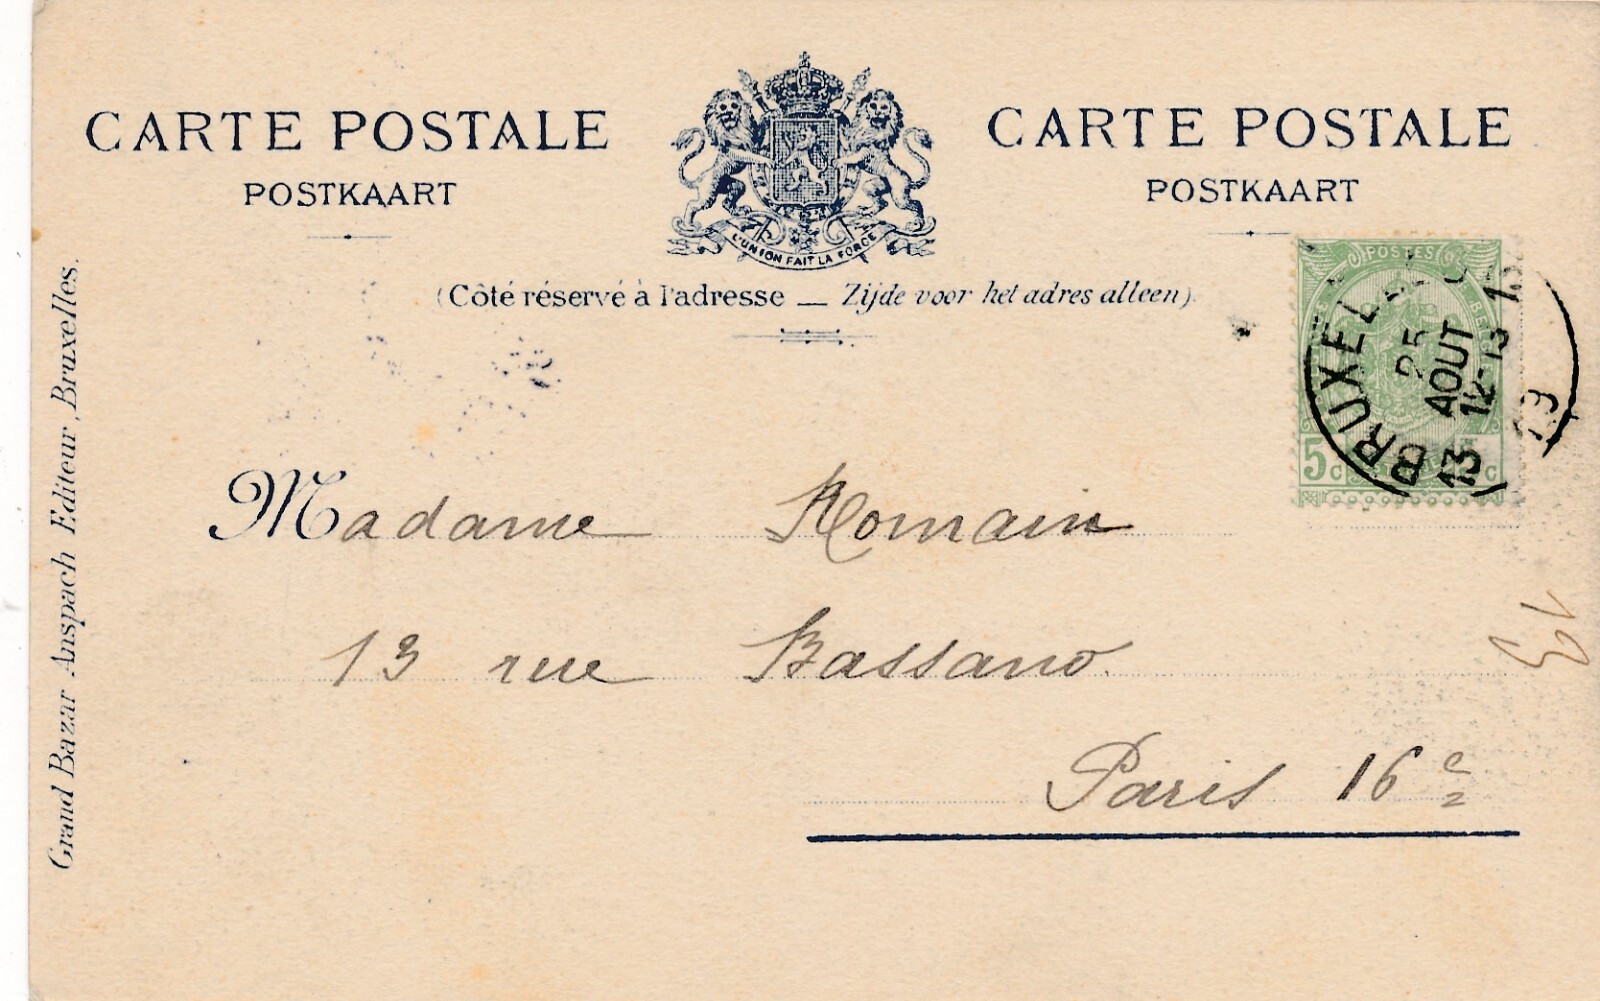 CARTE POSTALE
POSTKAART
L'UNION FAIT LA FORCE
CARTE POSTALE
POSTKAART
(Côté réservé à l'adresse — Zijde voor het adres alleen).
Grand Bazar Anspach Editeur, Bruxelles.
POSTES
5 c
c
BRUXEL
25
AOUT
12-13
13
Madame Romain
13 rue Bassano
Paris 16e